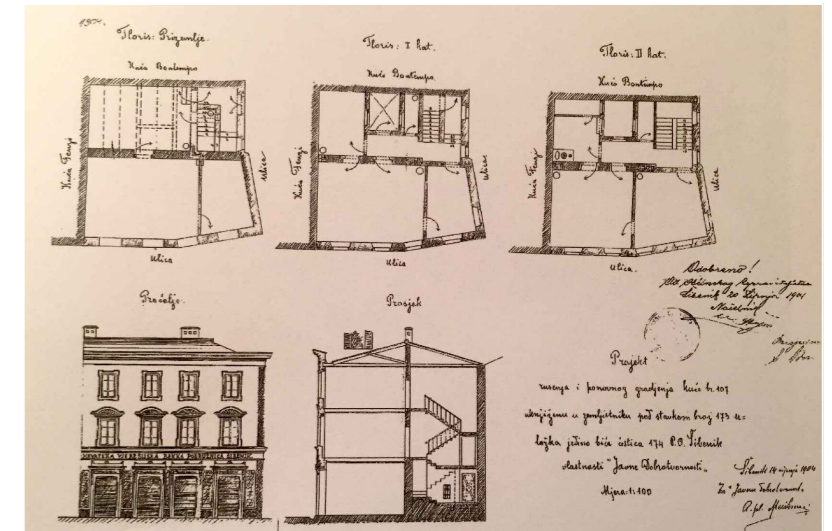 1904.
Tloris: Prizemlje.
Kuća Bontempo
Kuća Fenzi
Ulica
Ulica
Tloris: I kat.
Kuća Bontempo.
Kuća Fenzi
Ulica
Ulica
Tloris: II kat.
Kuća Bontempo
Kuća Fenzi
Ulica
Ulica.
Odobreno!
Šibenik 20 lipnja 1904
Načelnik
Pročelje.
Prosjek
Projekt
rušenja i ponovnog gradjenja kuće br. 107
uknjižene u zemljištniku pod stavkom broj 173 u=
loška jedno biće čestica 174 P.O. Šibenik
vlastnosti "Javne Dobrotvornosti".
Mjera 1:100
Šibenik 14 lipnja 1904
Za "Javnu Dobrotvorn.